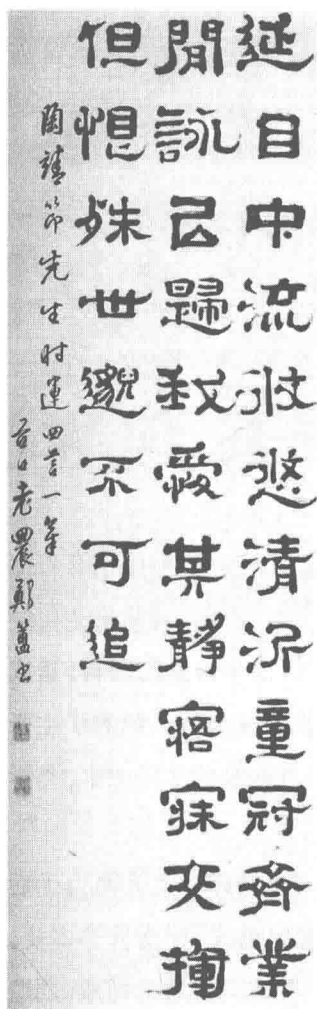 延目中流攸悠清沂童冠齊業
閒詠以歸我愛其靜寤寐交揮
但恨殊世邈不可追
陶靖節先生时運四言一章
谷口老農鄭簠書